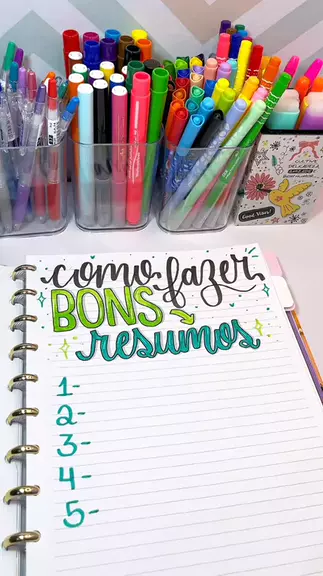 como fazer
BONS
resumos
1-
2-
3-
4-
5-
Good Vibes!